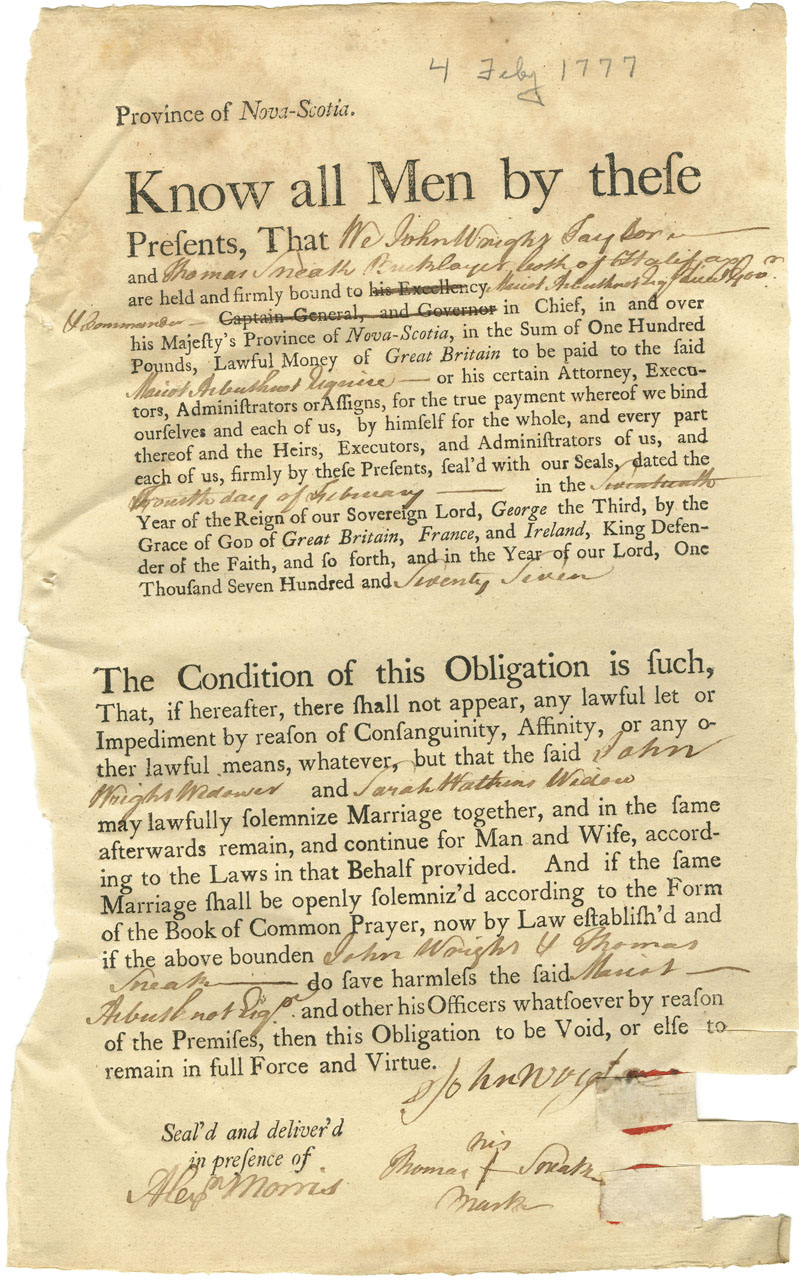 4 Feby 1777
Province of Nova-Scotia.
Know all Men by theſe
Preſents, That We John Wright Taylor
and Thomas Sneath Bricklayer both of Halifax
are held and firmly bound to his Excellency Mariot Arbuthnot Esqr Lieut. Govr.
& Commander Captain-General, and Governor in Chief, in and over
his Majeſty's Province of Nova-Scotia, in the Sum of One Hundred
Pounds, Lawful Money of Great Britain to be paid to the ſaid
Mariot Arbuthnot Esquire or his certain Attorney, Execu-
tors, Adminiſtrators or Aſſigns, for the true payment whereof we bind
ourſelves and each of us, by himſelf for the whole, and every part
thereof and the Heirs, Executors, and Adminiſtrators of us, and
each of us, firmly by theſe Preſents, ſeal'd with our Seals, dated the
Fourth day of February in the Seventeenth
Year of the Reign of our Sovereign Lord, George the Third, by the
Grace of God of Great Britain, France, and Ireland, King Defen-
der of the Faith, and ſo forth, and in the Year of our Lord, One
Thouſand Seven Hundred and Seventy Seven
The Condition of this Obligation is ſuch,
That, if hereafter, there ſhall not appear, any lawful let or
Impediment by reaſon of Conſanguinity, Affinity, or any o-
ther lawful means, whatever, but that the ſaid John
Wright Widower and Sarah Watkins Widow
may lawfully ſolemnize Marriage together, and in the ſame
afterwards remain, and continue for Man and Wife, accord-
ing to the Laws in that Behalf provided. And if the ſame
Marriage ſhall be openly ſolemniz'd according to the Form
of the Book of Common Prayer, now by Law eſtabliſh'd and
if the above bounden John Wright & Thomas
Sneath do ſave harmleſs the ſaid Mariot
Arbuthnot Esqr. and other his Officers whatſoever by reaſon
of the Premiſes, then this Obligation to be Void, or elſe to
remain in full Force and Virtue.
John
Seal'd and deliver'd
in preſence of
Alexr Morris
his
Thomas Sneath
mark